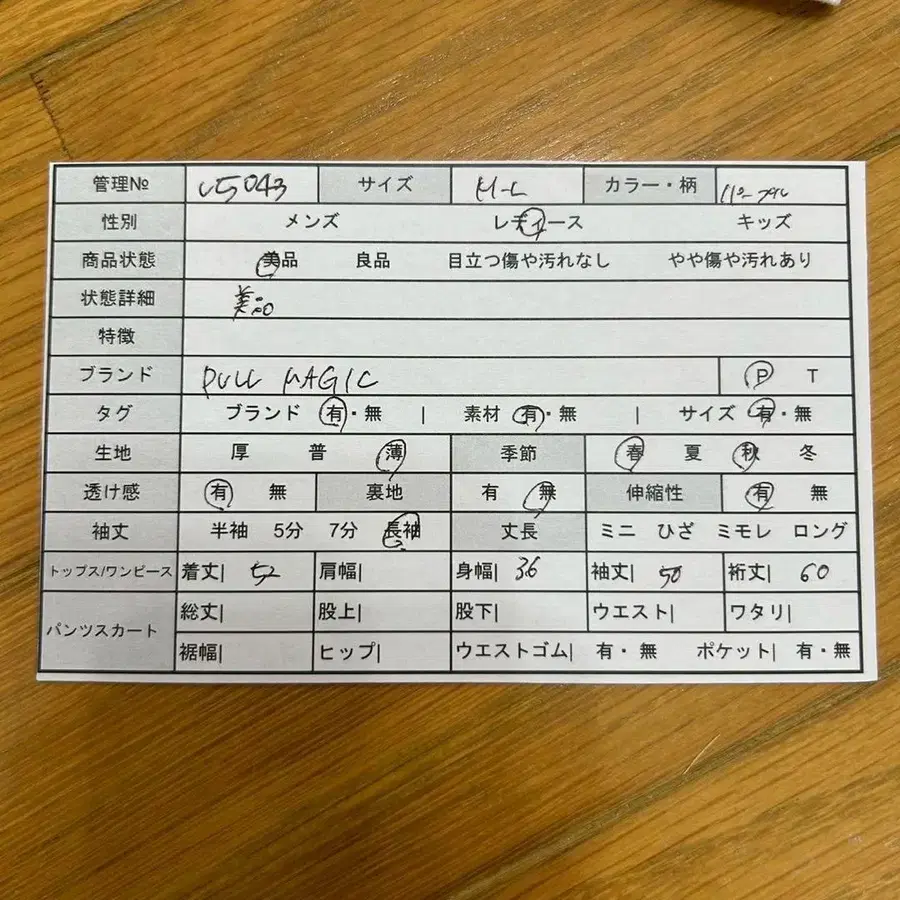 管理№ V5043 サイズ M-L カラー・柄 パープル
性別 メンズ レディース キッズ
商品状態 美品 良品 目立つ傷や汚れなし やや傷や汚れあり
状態詳細 美品
特徴
ブランド PULL MAGIC P T
タグ ブランド 有・無 | 素材 有・無 | サイズ 有・無
生地 厚 普 薄 季節 春 夏 秋 冬
透け感 有 無 裏地 有 無 伸縮性 有 無
袖丈 半袖 5分 7分 長袖 丈長 ミニ ひざ ミモレ ロング
トップス/ワンピース 着丈| 52 肩幅| 身幅| 36 袖丈| 50 裄丈| 60
パンツスカート 総丈| 股上| 股下| ウエスト| ワタリ|
裾幅| ヒップ| ウエストゴム| 有・無 ポケット| 有・無